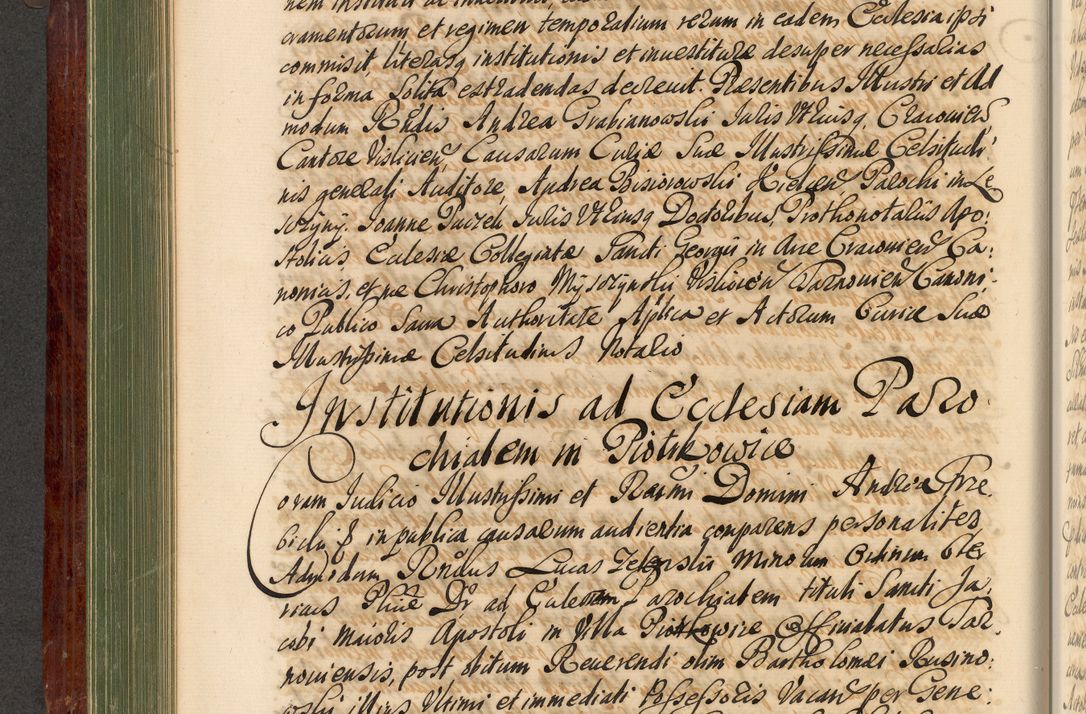 cramentorum et regimen temporalium rerum in eadem Ecclesia ipsi
commisit, literasq institutionis et investituræ desuper necessarias
in forma solita extradendas decrevit. Præsentibus Illustri et Ad
modum Rndis Andrea Grabianowski Juris Utriusq, Cracovien
Cantore Vislicien, Causarum Curiæ Suæ Illustrissimæ Celsitudi:
nis generali Auditore, Andrea Bisiorowski Kielcen Parochi in Le
Joanne Juris Utriusq Doctoribus, Prothonotariis Apo:
stolicis, Ecclesiæ Collegiatæ Sancti Georgii in Arce Cracovien Ca:
nonicis, et me Christophoro Mysczynski Vislicien Tarnovien Canoni:
co Publico Sacra Authoritate Aplica et Actorum Curiæ Suæ
Illustrissimæ Celsitudinis Notario
Institutionis ad Ecclesiam Paro
chialem in Piotrkowice
Coram Judicio Illustrissimi et Rdmi Domini Andreæ Trze
bicki &c in publica causarum audientia comparens personaliter
Admodum Rndus Lucas Minorum Ordinum Cle
ricus Phiæ Dr ad Ecclesiam Parochialem tituli Sancti Ja:
cobi Maioris Apostoli in Villa Piotrkowice Officialatus Tar
noviensis, post obitum Reverendi olim Bartholomæi Rusino:
wski illius Ultimi et immediati Possessoris Vacan per Gene: